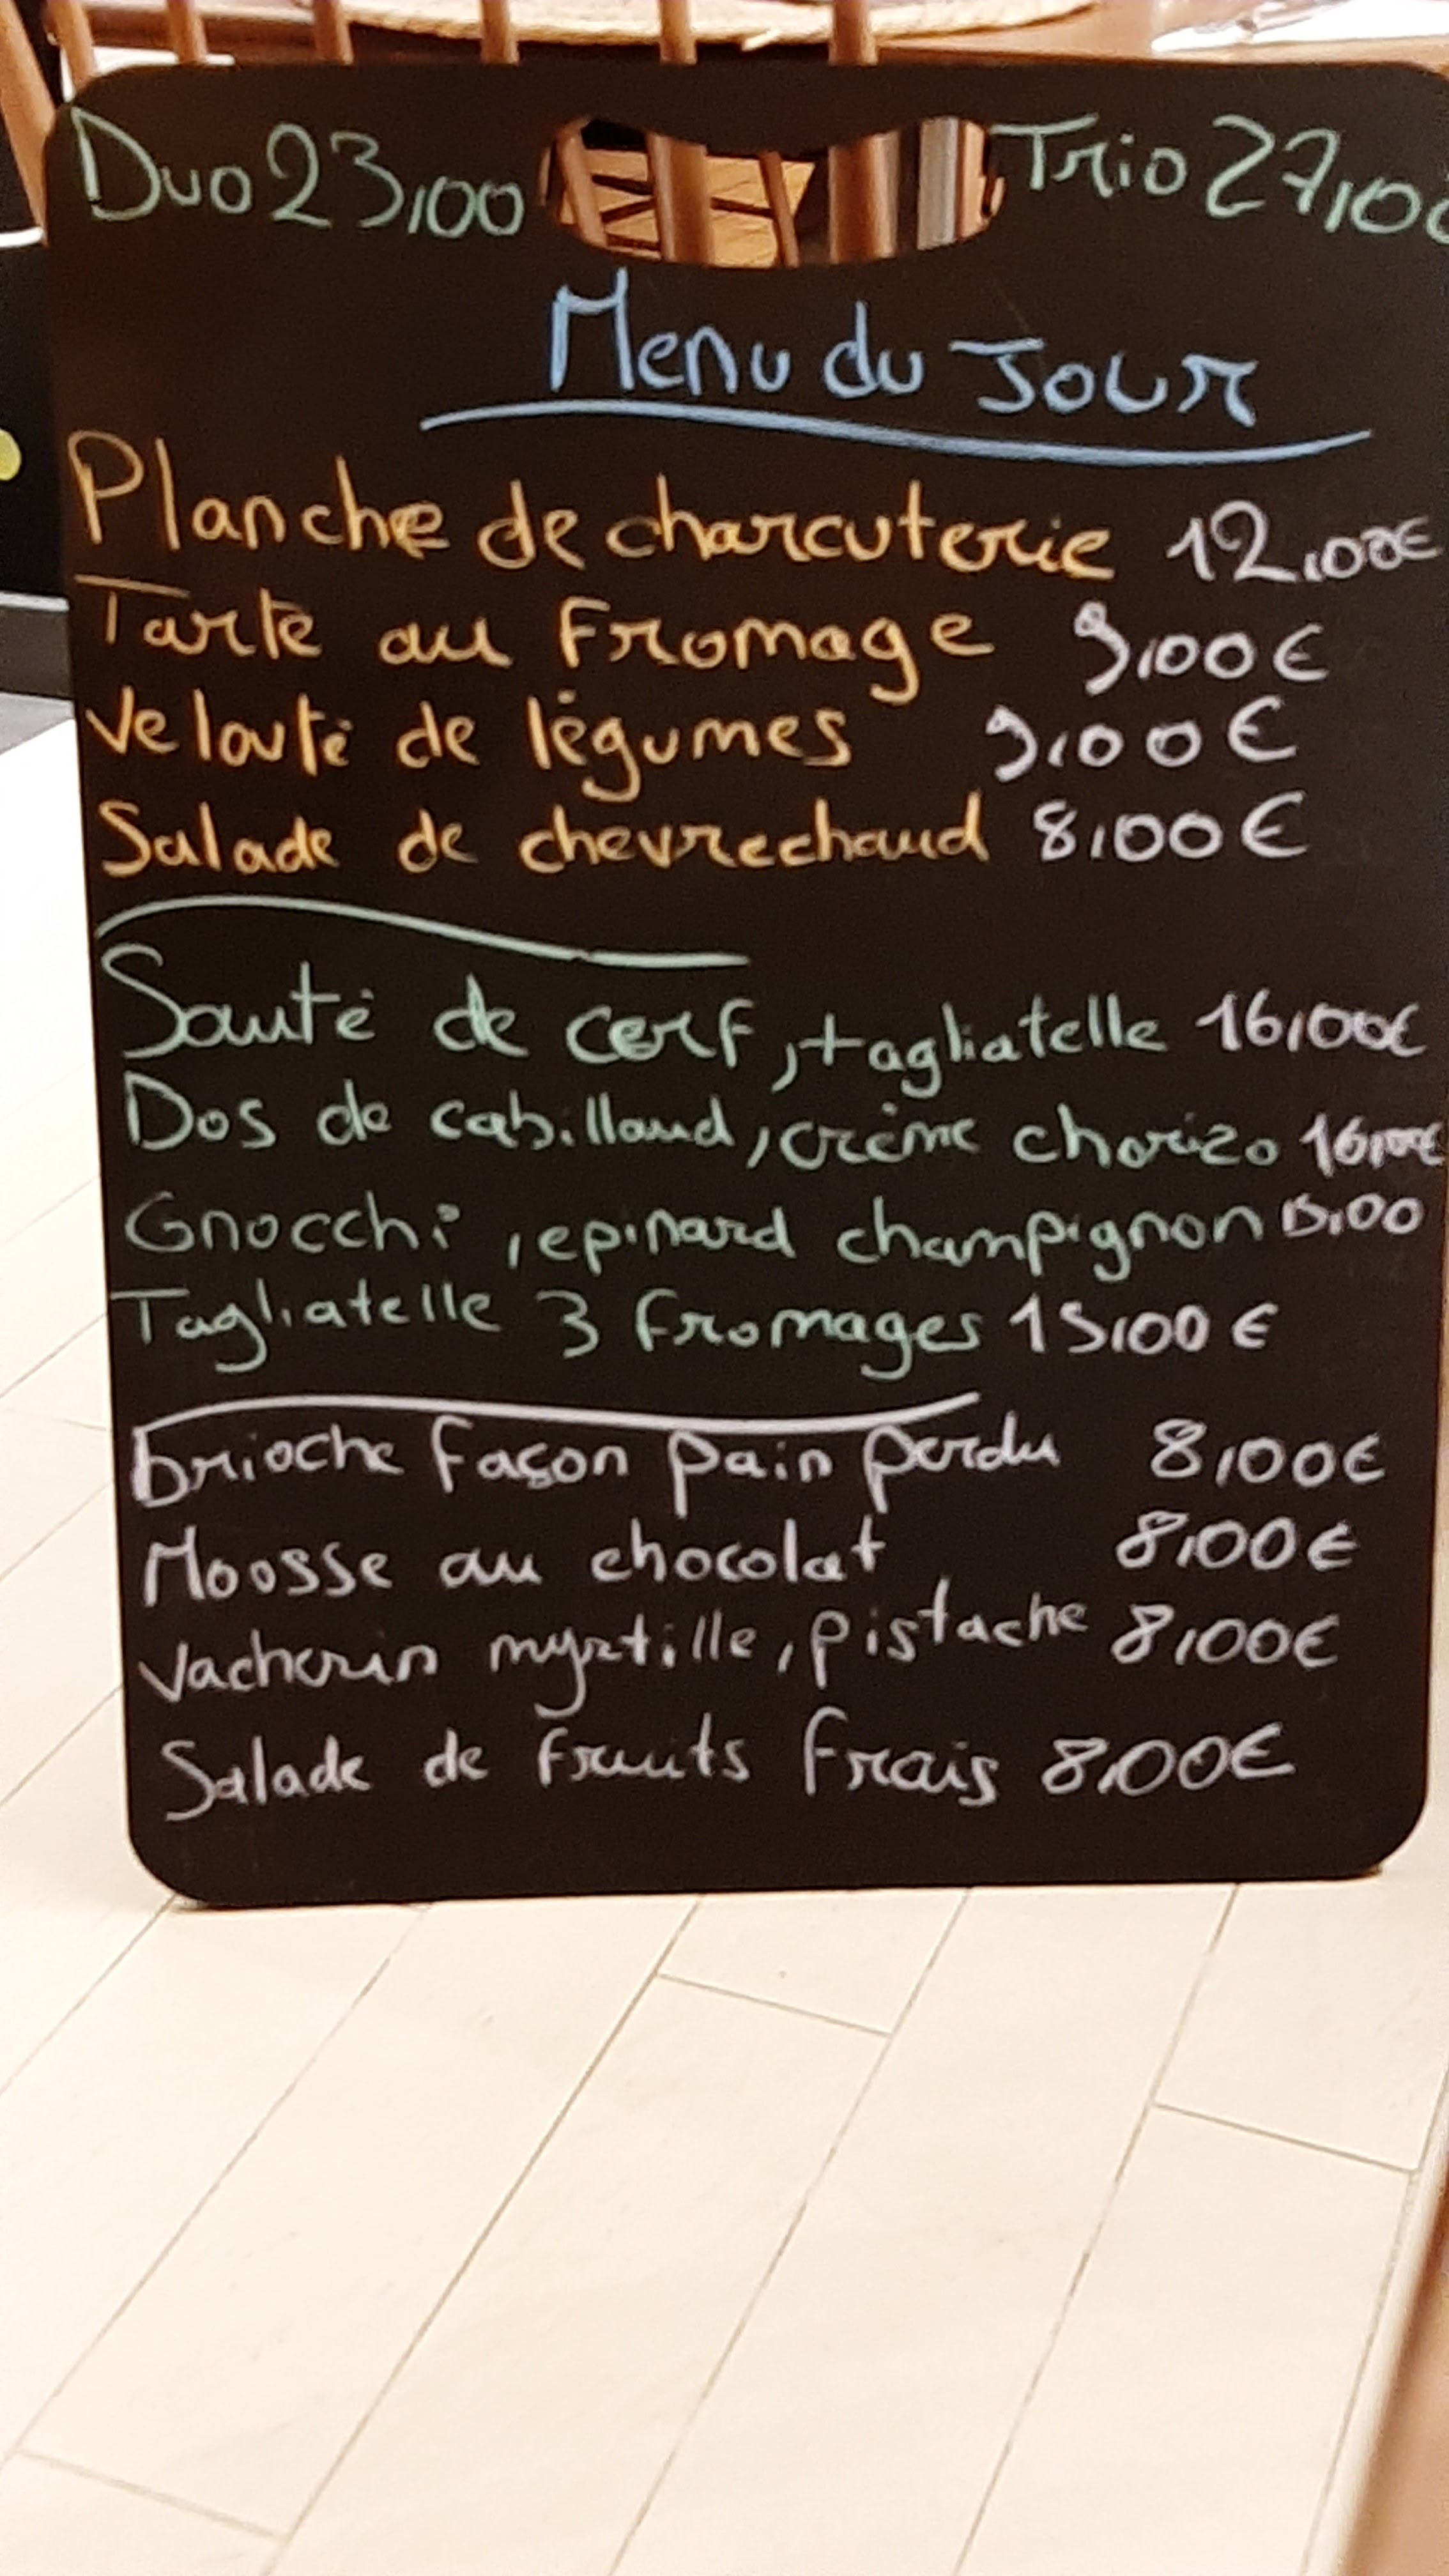 Duo 23,00 Trio 27,00
Menu du Jour
Planche de charcuterie 12,00€
Tarte au Fromage 9,00€
Velouté de légumes 9,00€
Salade de chevrechaud 8,00€
Sauté de cerf, tagliatelle 16,00€
Dos de cabillaud, crème chorizo 16,00€
Gnocchi, epinard champignon 15,00
Tagliatelle 3 fromages 15,00€
Brioche façon pain perdu 8,00€
Moosse au chocolat 8,00€
Vacherin myrtille, pistache 8,00€
Salade de fruits frais 8,00€